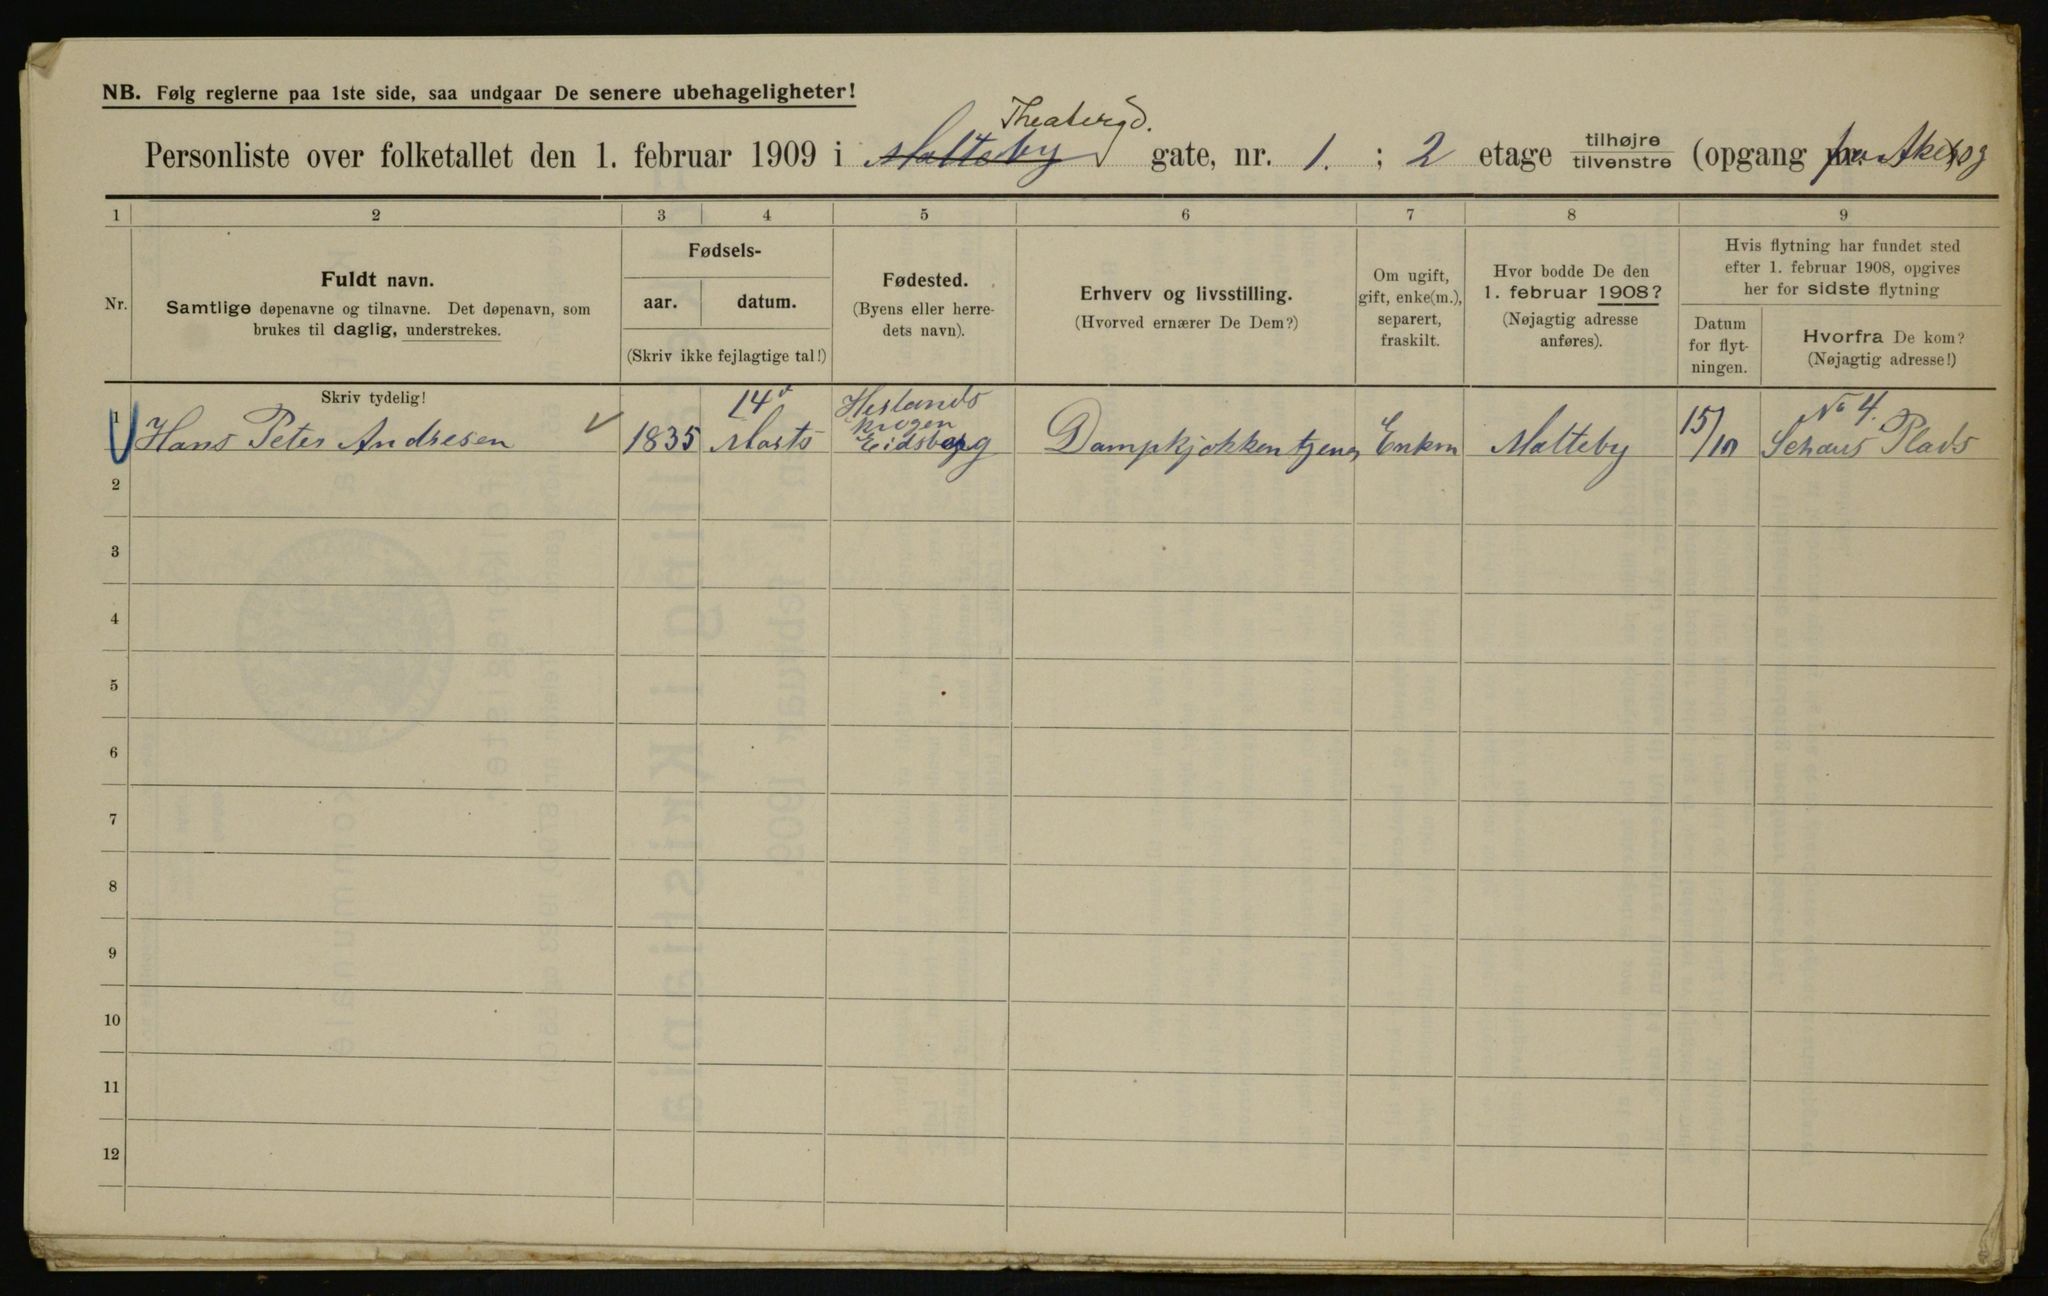 NB. Følg reglerne paa 1ste side, saa undgaar De senere ubehageligheter!
Theatergd.
Personliste over folketallet den 1. februar 1909 i Malteby gate, nr. 1. ; 2 etage tilhøjre tilvenstre (opgang
1 2 3 4 5 6 7 8 9
Nr.
Fuldt navn.
Samtlige døpenavne og tilnavne. Det døpenavn, som
brukes til daglig, understrekes.
Fødsels-
aar. datum.
(Skriv ikke fejlagtige tal!)
Fødested.
(Byens eller herre-
dets navn).
Erhverv og livsstilling.
(Hvorved ernærer De Dem?)
Om ugift,
gift, enke(m.),
separert,
fraskilt.
Hvor bodde De den
1. februar 1908?
(Nøjagtig adresse
anføres).
Hvis flytning har fundet sted
efter 1. februar 1908, opgives
her for sidste flytning
Datum
for flyt-
ningen.
Hvorfra De kom?
(Nøjagtig adresse!)
Skriv tydelig!
1 Hans Peter Andresen 1835 14d Marts Heslands krogen Eidsberg Dampkjøkkentjener Enkm Malteby 15/10 No 4. Schous Plads
2
3
4
5
6
7
8
9
10
11
12